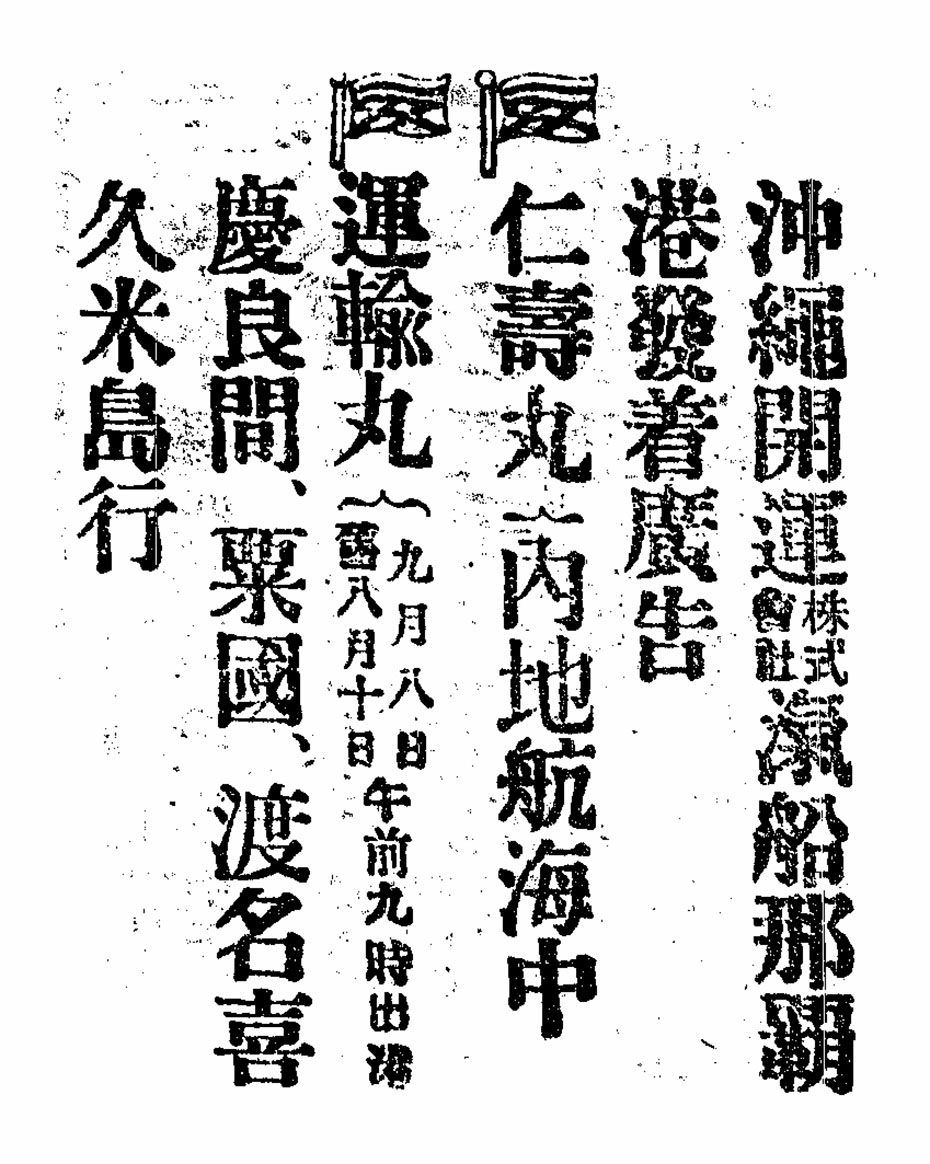 沖繩開運株式會社滊船那覇
港發着廣告
仁壽丸 內地航海中
運輸丸 九月八日 舊八月十日 午前九時出港
慶良間、粟國、渡名喜
久米島行